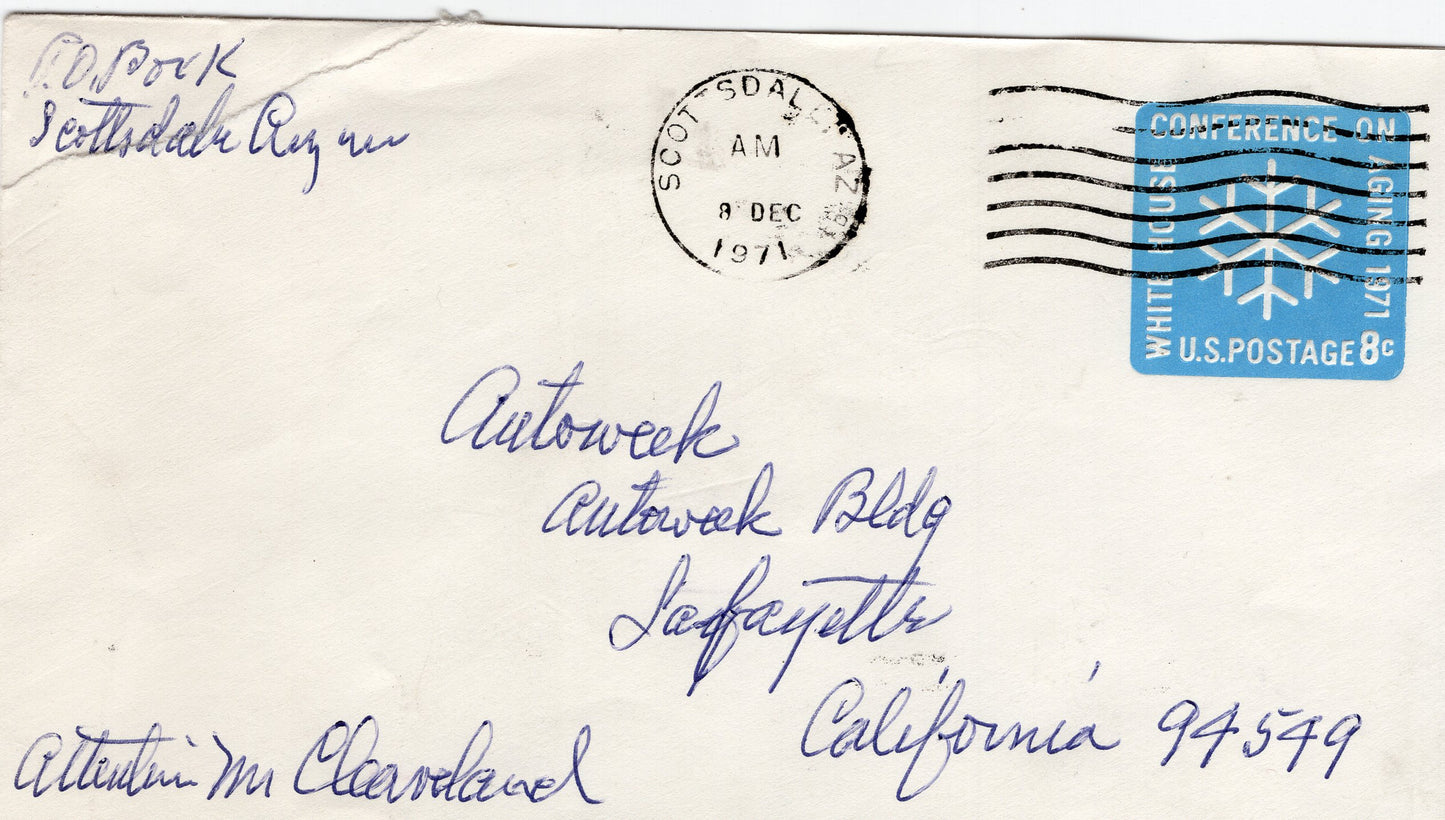 Bork
Scottsdale
SCOTTSDALE, AZ
AM
8 DEC
1971
CONFERENCE ON
AGING 1971
WHITE HOUSE
U.S.POSTAGE 8c
Autoweek
Autoweek Bldg
Lafayette
California 94549
Attention Mr Cleaveland